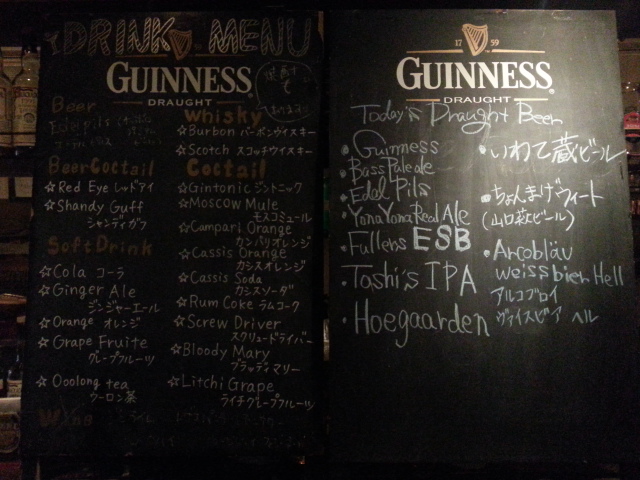 DRINK MENU
GUINNESS
DRAUGHT
Beer
Edelpils
Beer Coctail
☆Red Eye レッドアイ
☆Shandy Guff
シャンディガフ
Soft Drink
☆Cola コーラ
☆Ginger Ale
ジンジャーエール
☆Orange オレンジ
☆Grape Fruite
グレープフルーツ
☆Ooolong tea
ウーロン茶
Wine
Whisky
☆Burbon バーボンウイスキー
☆Scotch スコッチウイスキー
Coctail
☆Gintonic ジントニック
☆Moscow Mule
モスコミュール
☆Campari Orange
カンパリオレンジ
☆Cassis Orange
カシスオレンジ
☆Cassis Soda
カシスソーダ
☆Rum Coke ラムコーク
☆Screw Driver
スクリュードライバー
☆Bloody Mary
ブラッディマリー
☆Litchi Grape
ライチグレープフルーツ
17 59
GUINNESS
DRAUGHT
Today's Draught Beer
・Guinness
・Bass Pale ale
・Edel Pils
・Yona Yona Real Ale
・Fullers ESB
・Toshi's IPA
・Hoegaarden
・いわて蔵ビール
・ちょんまげウィート
・Arcobläu
weissbier Hell
アルコブロイ
ヴァイスビア ヘル